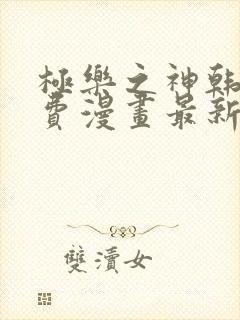 極樂之神韩
費漫畫最新
雙瀆女